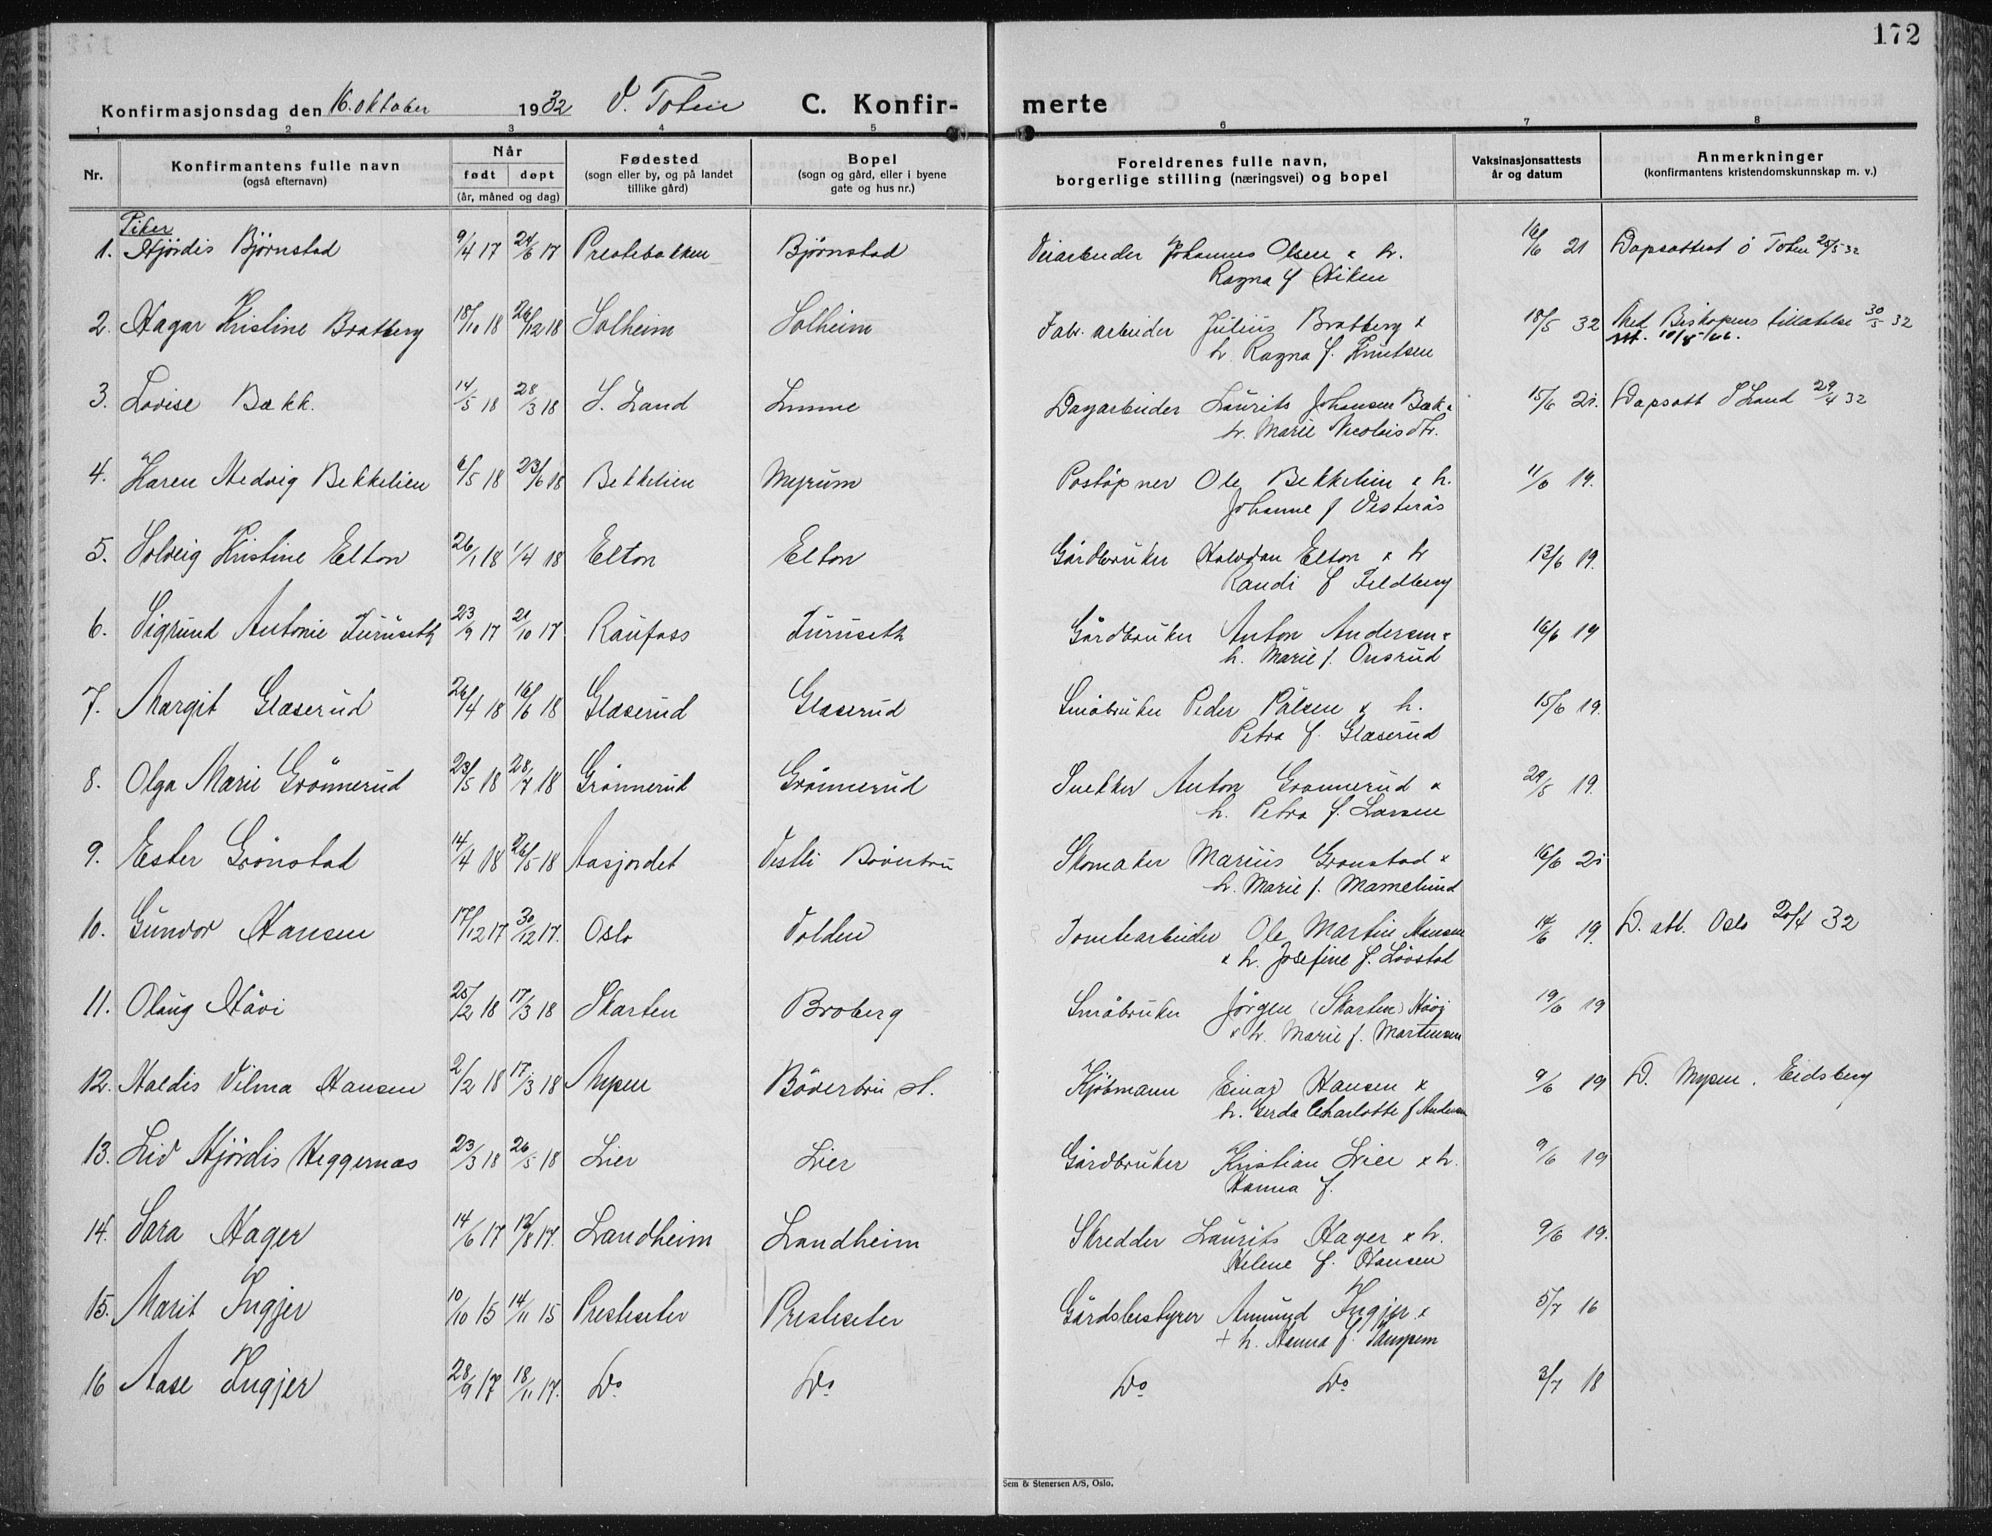 172
Konfirmasjonsdag den 16. oktober 1932 V. Toten C. Konfir- merte
1 2 3 4 5 6 7 8
Nr. Konfirmantens fulle navn (også efternavn) Når født døpt (år, måned og dag) Fødested (sogn eller by, og på landet tillike gård) Bopel (sogn og gård, eller i byene gate og hus nr.) Foreldrenes fulle navn, borgerlige stilling (næringsvei) og bopel Vaksinasjonsattests år og datum Anmerkninger (konfirmantens kristendomskunnskap m. v.)
Piker
1. Hjördis Björnstad 9/4 17 24/6 17 Prestebakken Bjørnstad Veiarbeider Johannes Olsen & h. 16/6 21 Dapsattest Ö Toten 25/5 32
Ragna f
2. Hagar Kristine Bratberg 18/10 18 26/12 18 Solheim Solheim Fabr. arbeider Julius Bratberg & 18/5 32 Med Biskopens tillatelse 30/5 32
h. Ragna f. Knutsen
3. Lovise Bækk. 14/5 18 28/3 18 S. Land Dagarbeider Laurits Johansen Bæk & 15/6 21. Dapsatt S Land 29/4 32
h. Marie Nicolaisdtr.
4. Karen Hedvig Bekkelien 6/5 18 23/6 18 Bekkelien Myrum Postöpner Ole Bekkelien & h. 11/6 19.
Johanne f Vesterås
5. Solveig Kristine Elton 26/1 18 1/4 18 Elton Elton Gårdbruker Halvdan Elton & h 13/6 19.
Randi f Feldberg
6. Sigrund Antonie Furuseth 23/9 17 21/10 17 Raufoss Furuseth Gårdbruker Anton Andersen & 16/6 19
h. Marie f. Onsrud
7. Margit Glæserud 26/4 18 16/6 18 Glæserud Glæserud Småbruker Peder Pålsen & h. 15/6 19.
Petra f. Glæserud
8. Olga Marie Grönnerud 23/5 18 28/7 18 Grönnerud Grönnerud Snekker Anton Grönnerud & 29/8 19.
h. Petra f. Larsen
9. Ester Grönstad 14/4 18 26/5 18 Aasjordet Vestli Bøverbru Skomaker Marius Grönstad & 16/6 21
h. Marie f. Mamelund
10. Gundor Hansen 17/12 17 30/12 17. Oslo Volden Tomtearbeider Ole Martin Hansen 14/6 19. D. att. Oslo 20/4 32
& h. Josefine f. Lövstad
11. Olaug Hävi 25/2 18 17/3 18 Skarten Broberg Småbruker Jörgen (Skarten) Hävi 19/6 19
& h. Marie f. Martinsen
12. Haldis Vilma Hansen 2/2 18 17/3 18 Mysen Böverbru st. Kjöbmann Einar Hansen & 9/6 19 D. Mysen. Eidsberg
h. Gerda Charlotte f Andersen
13. Liv Hjördis Heggernæs 23/3 18 26/5 18 Lier Lier Gårdbruker Kristian Lier & h. 9/6 19
Hanna f.
14. Sara Hager 14/6 17 12/8 17. Landheim Landheim Skredder Laurits Hager & h. 9/6 19.
Helene f. Hansen
15. Marit Ingjer 10/10 15 14/11 15 Presteseter Presteseter Gårdsbestyrer Amund Ingjer & 5/7 16
+ h. Hanna f.
16 Aase Ingjer 28/9 17 18/11 17. Do Do Do Do 3/7 18
Sem & Stenersen A/S, Oslo.